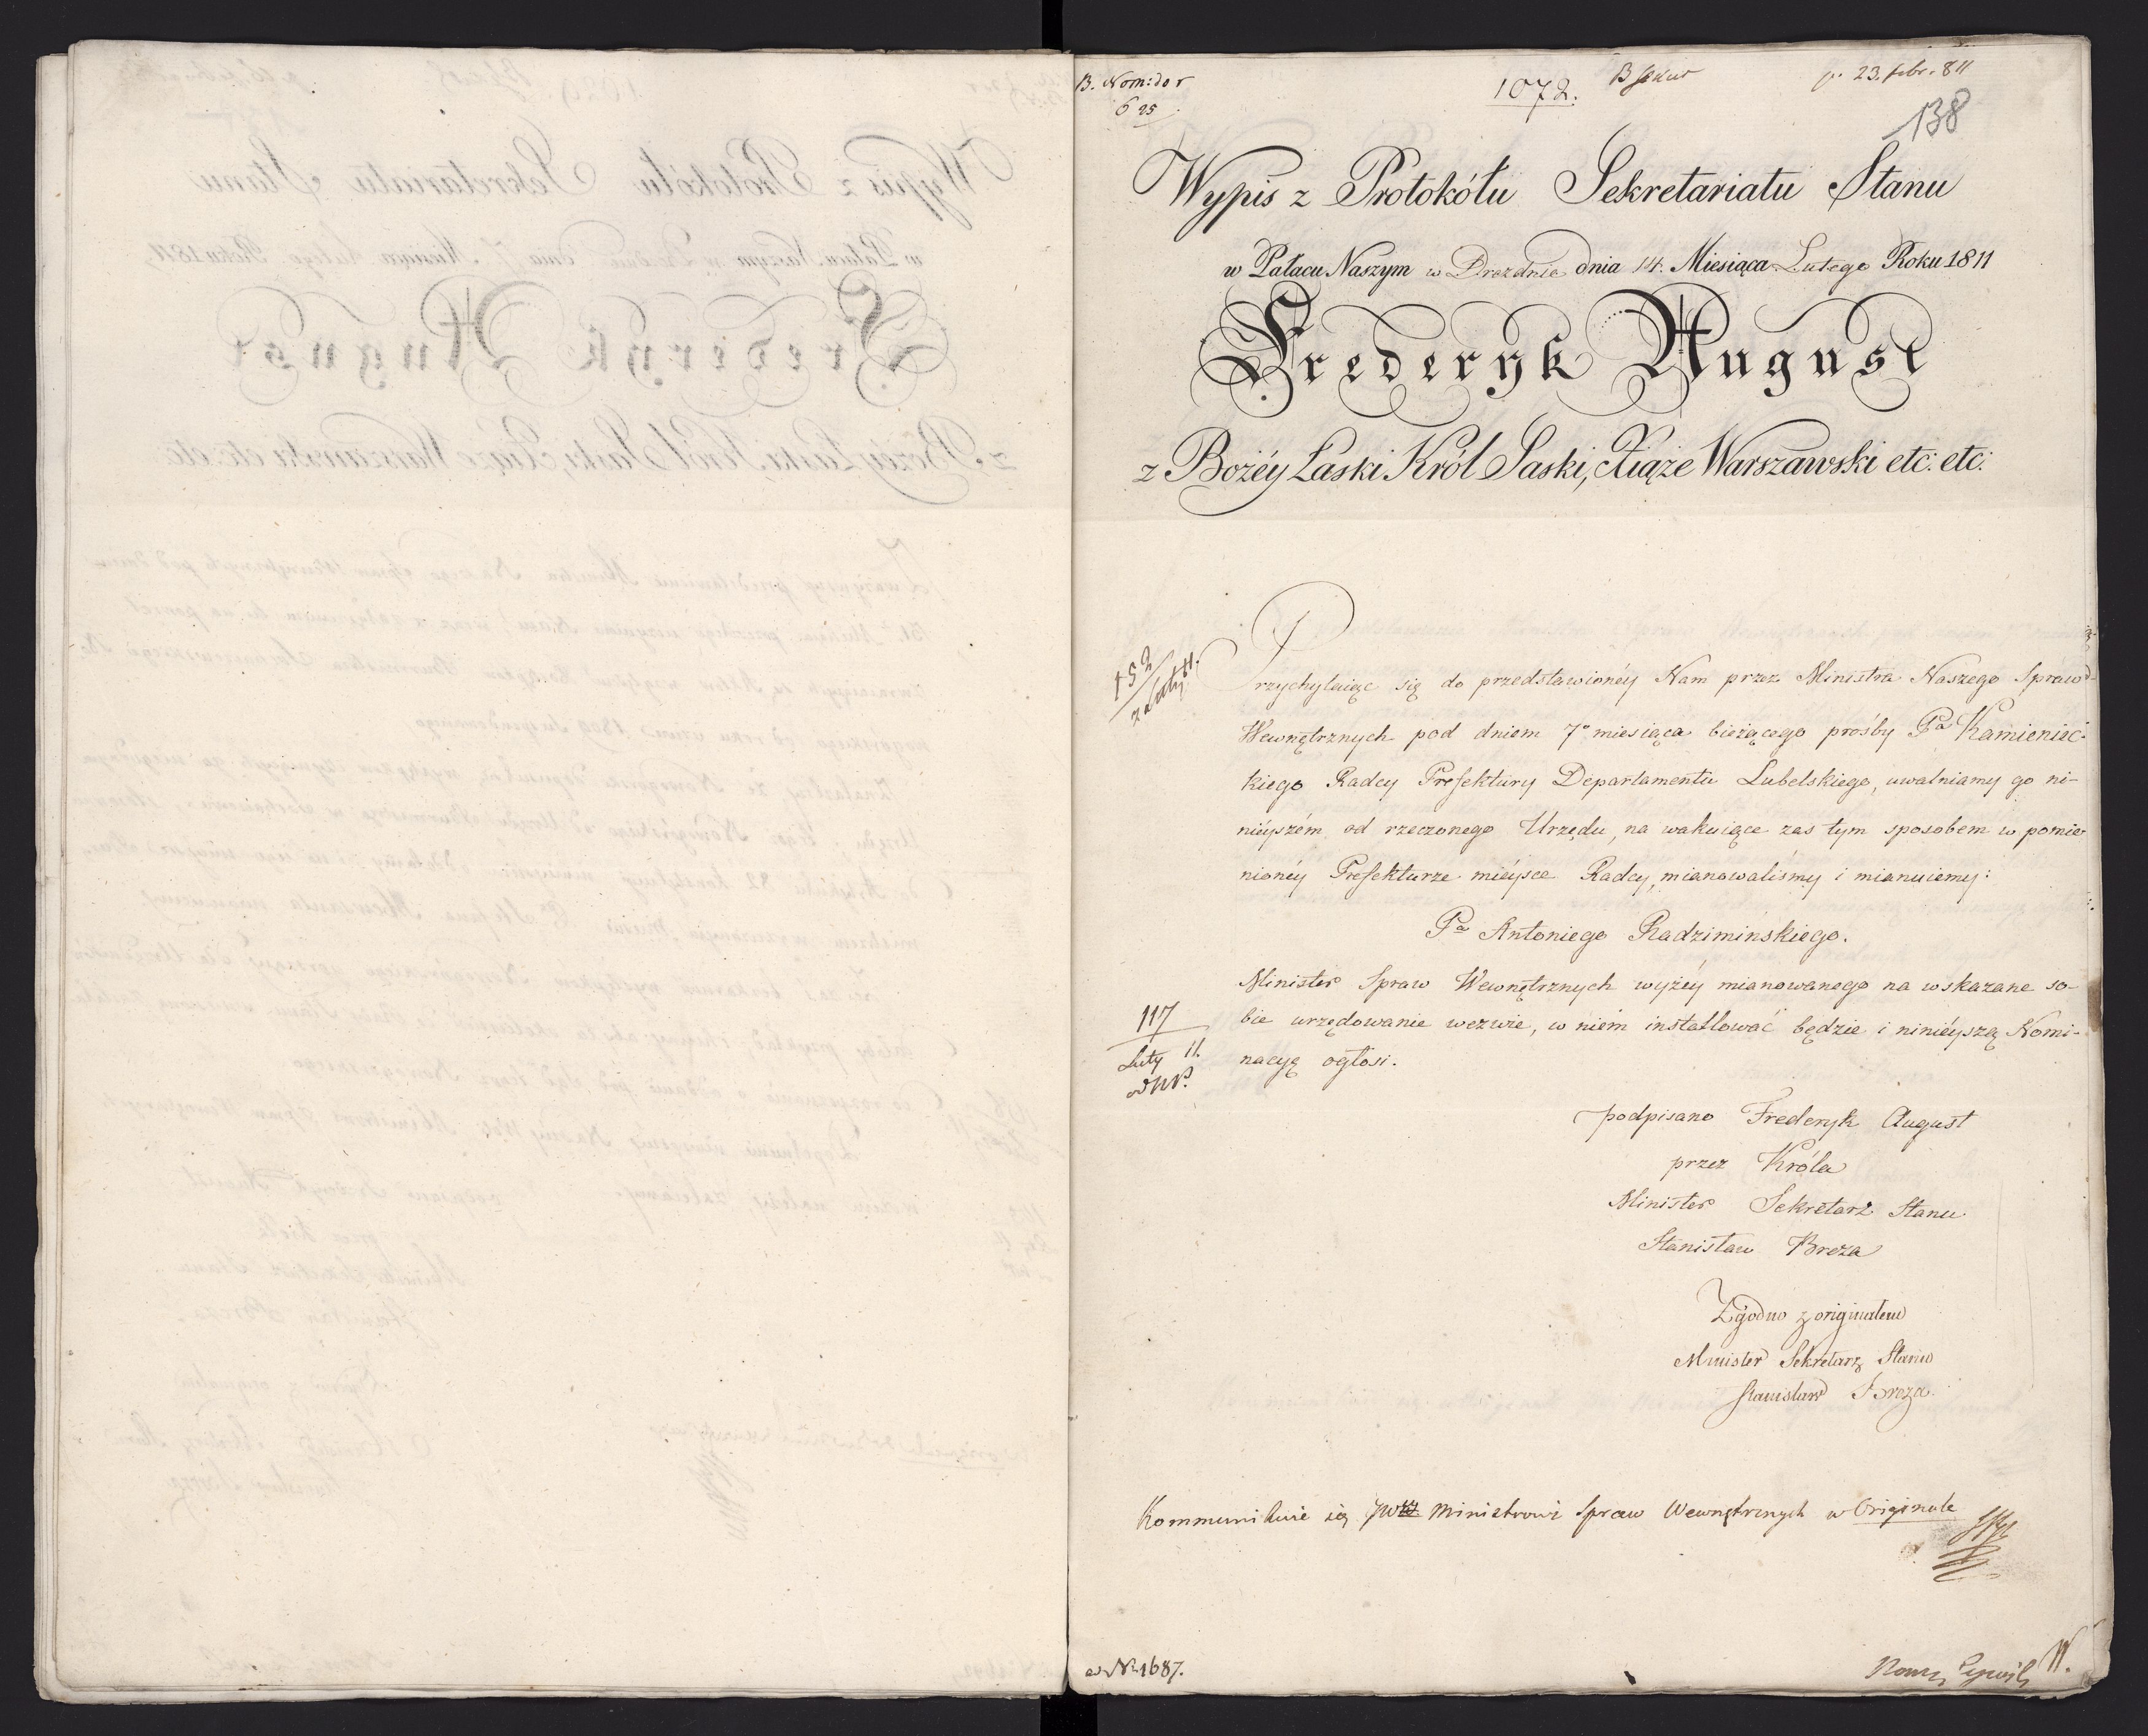 B. Nom: dor
6 25
1072.
B
23. febr. 811
138
Wypis z Protokółu Sekretariatu Stanu
w Pałacu Naszym w Dreznie dnia 14. Miesiąca Lutego Roku 1811
Frederyk August
z Bożéy Łaski Król Saski, Xiąże Warszawski etc: etc:
Przychylaiąc się do przedstawionéy Nam przez Ministra Naszego Spraw
Wewnętrznych pod dniem 7° miesiąca bieżącego prośby Pa Kamieniec-
kiego Radcy Prefektury Departamentu Lubelskiego, uwalniamy go ni-
niéyszém od rzeczonego Urzędu, na wakuiące zas tym sposobem w pomie-
nionéy Prefekturze miéysce Radcy, mianowaliśmy i mianuiemy:
Pa Antoniego Radziminskiego.
Minister Spraw Wewnętrznych wyżéy mianowanego na wskazane so-
bie urzędowanie wezwie, w niém installować będzie i ninieyszą Nomi-
nacyą ogłosi.
152
z Luty 11.
117
Luty 11.
podpisano Frederyk August
przez Króla
Minister Sekretarz Stanu
Stanisław Breza
Zgodno z originałem
Minister Sekretarz Stanu
Stanisław Breza
Kommunikuie się JW Ministrowi Spraw Wewnętrznych w Originale
Nr 1687.